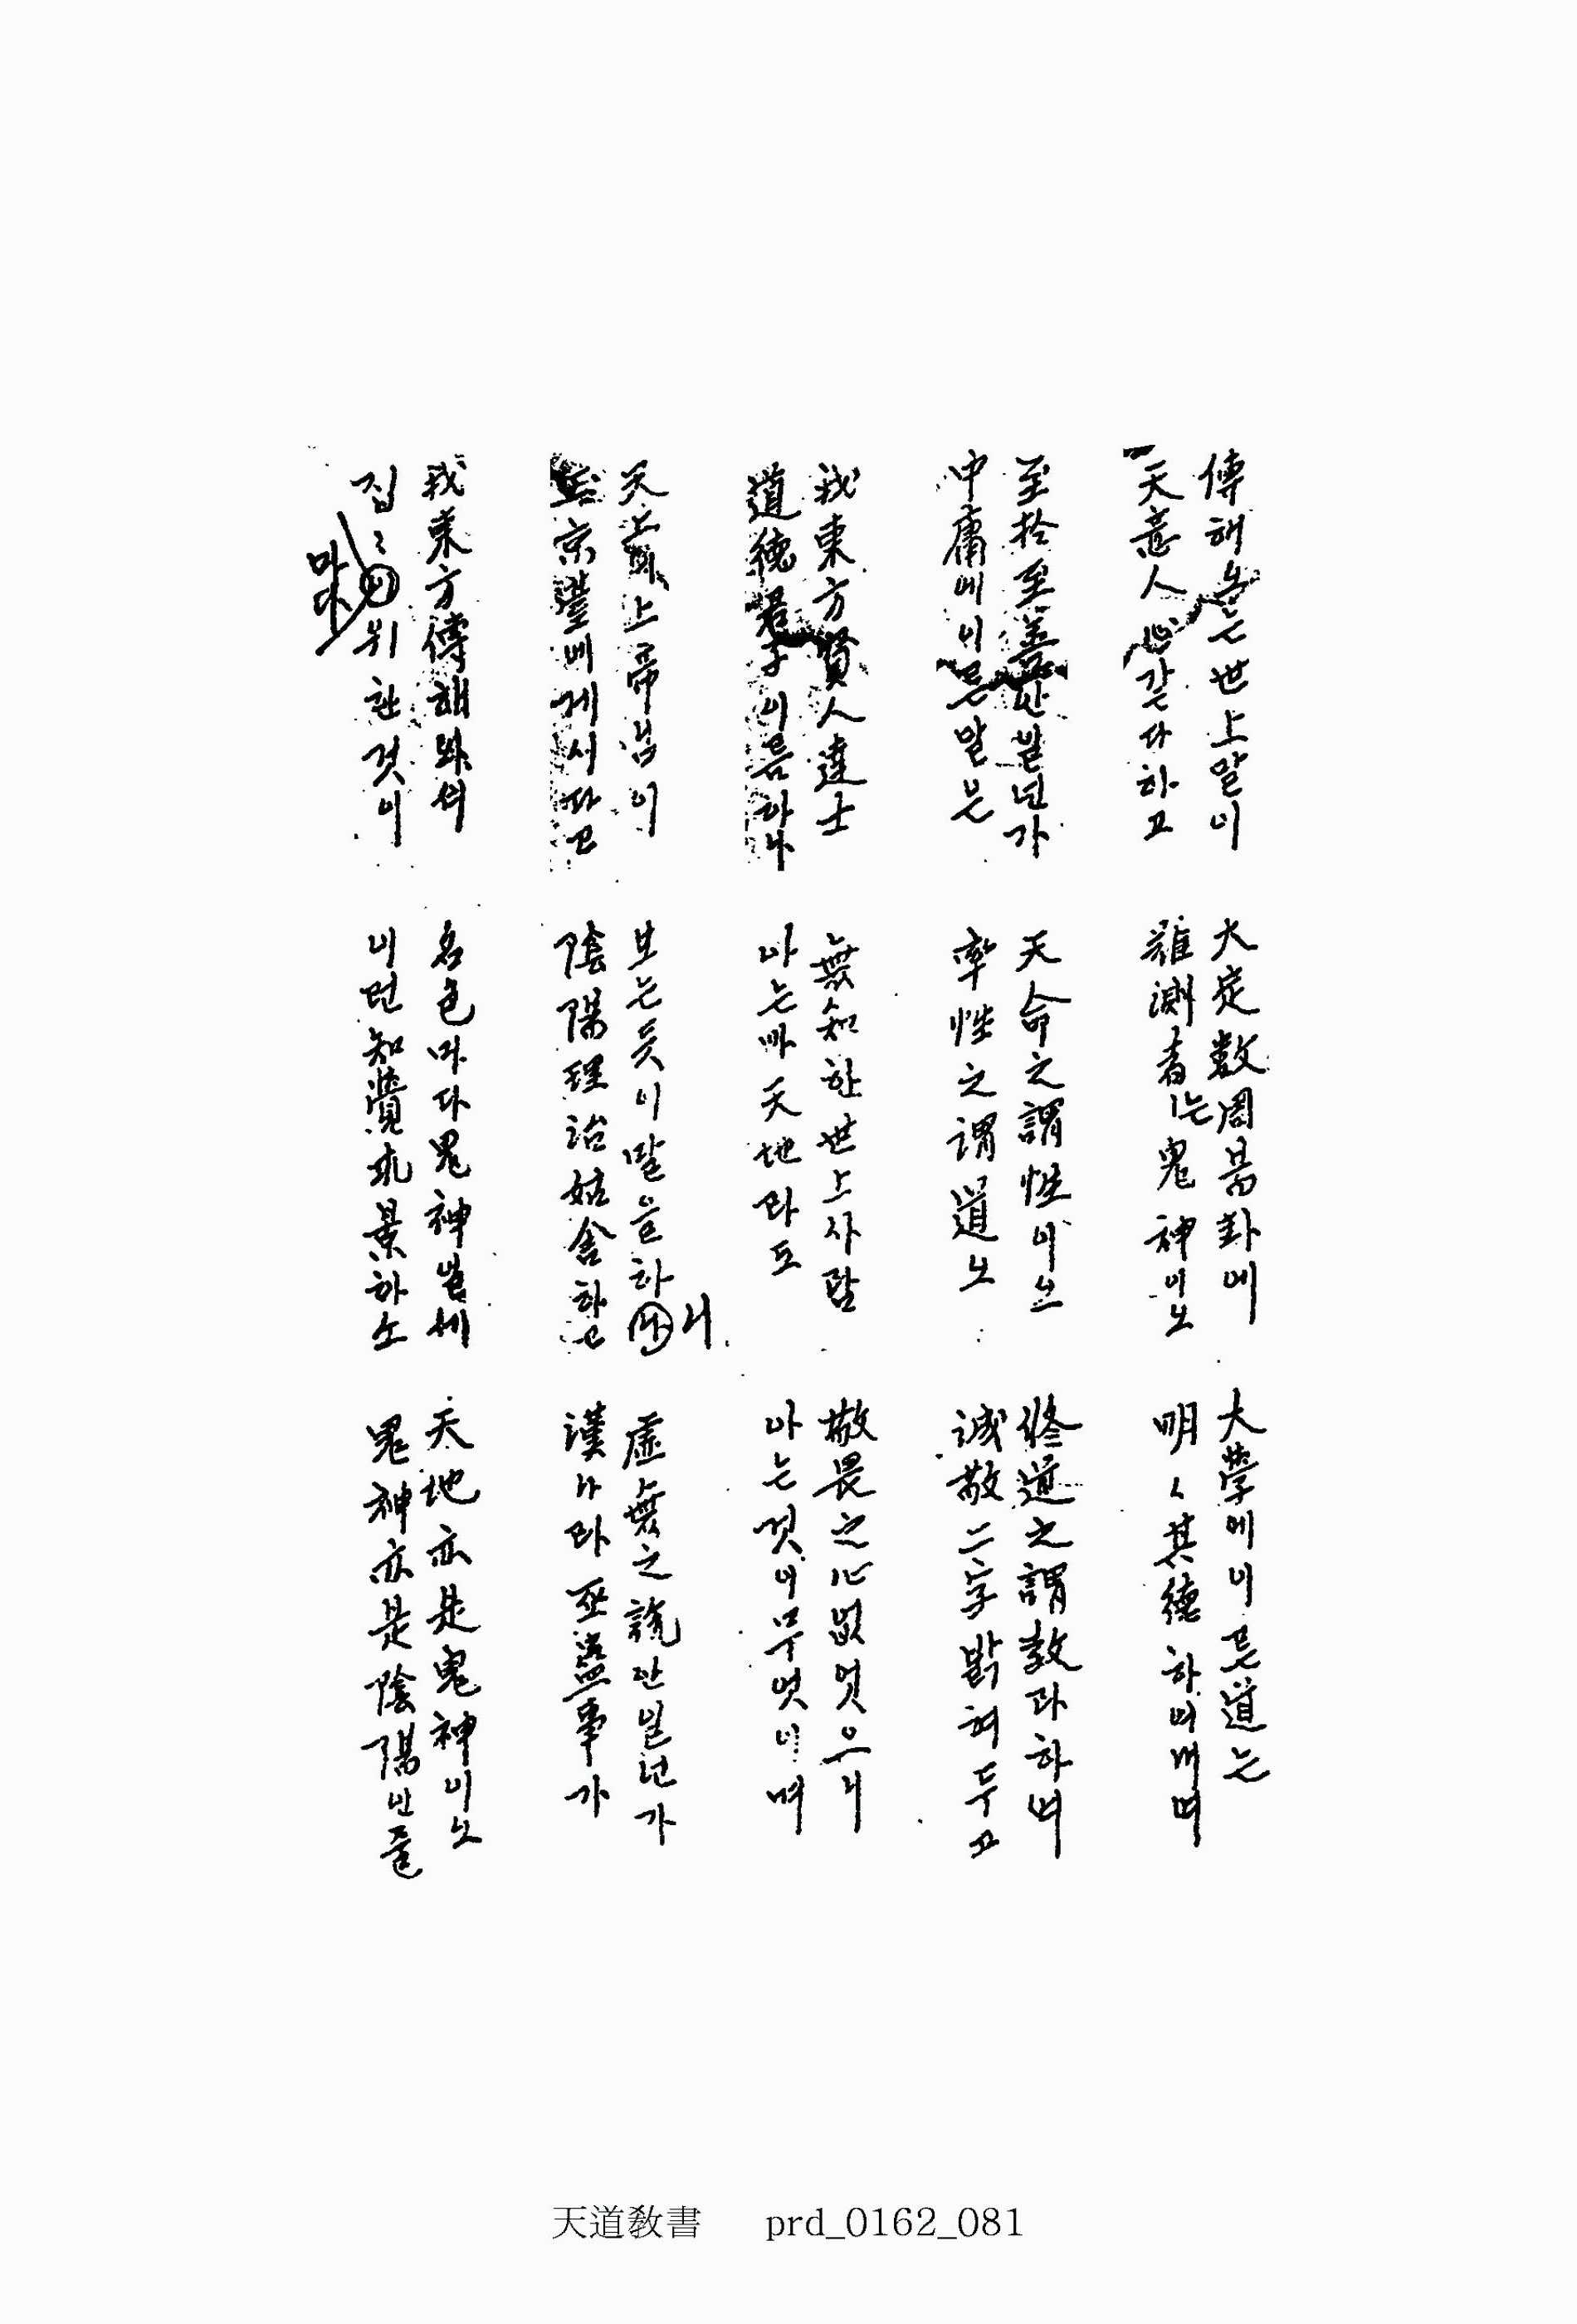 傳해오는世上말이
天意人心같다하고
大定數周易卦에
難測者는鬼神이오
大學에이른道는
明〻其德하여내며
至於至善안일넌가
中庸에이른말은
天命之謂性이오
率性之謂道오
修道之謂敎라하며
誠敬二字밝혀두고
我東方賢人達士
道德君子이름하나
無知한世上사람
아는바天地라도
敬畏之心없엇으니
아는것이무엇이며
天上에上帝님이
玉京臺에게시다고
보는듯이말을하니
陰陽理治姑舍하고
虛無之說안일넌가
漢나라巫蠱事가
我東方傳해와서
집〻이위한것이
名色마다鬼神일세
이런知覺求景하소
天地亦是鬼神이오
鬼神亦是陰陽인줄
天道敎書 prd_0162_081